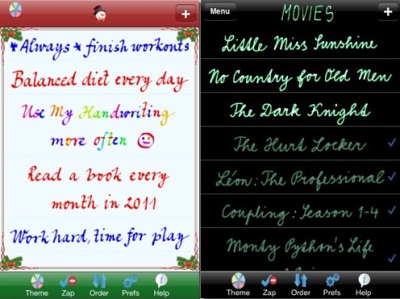 * Always * finish workouts
Balanced diet every day
Use My Handwriting
more often
Read a book every
month in 2011
Work hard, time for play
Theme Zap Order Prefs Help
Menu
MOVIES
Little Miss Sunshine
No Country for Old Men
The Dark Knight
The Hurt Locker
Léon: The Professional
Coupling: Season 1-4
Monty Python's Life
Theme Zap Order Prefs Help